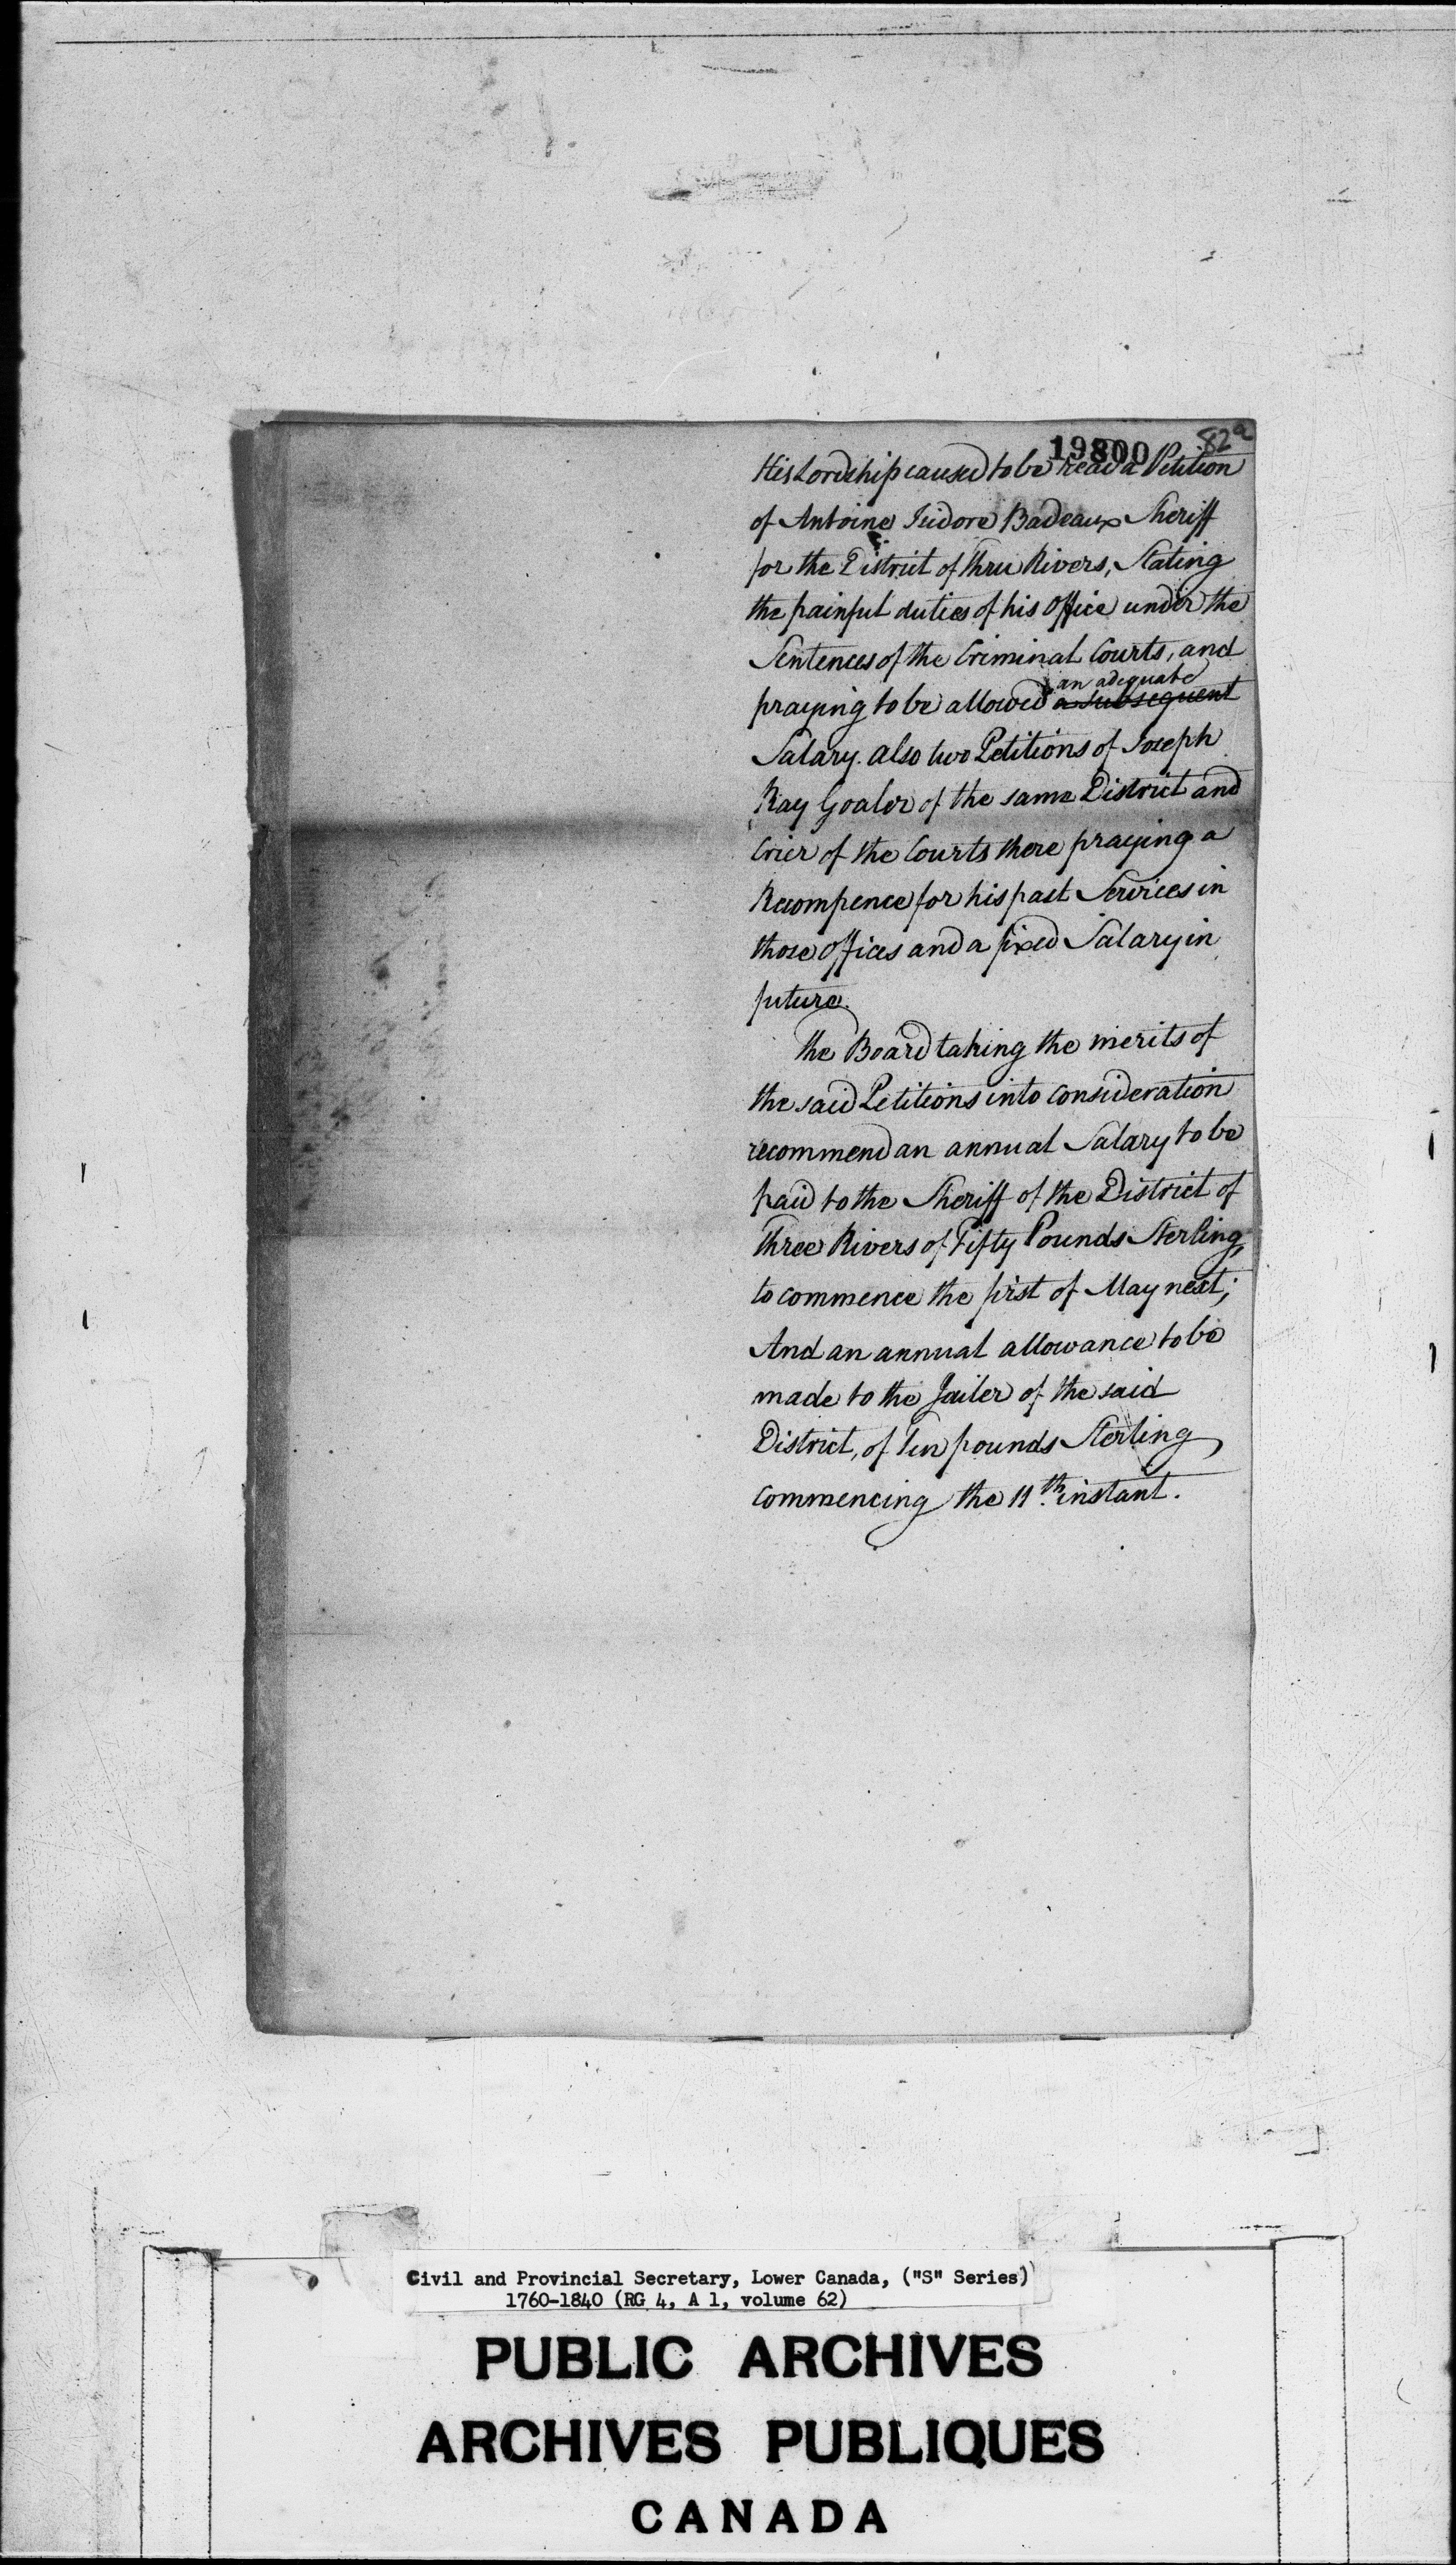 19800
82a
His Lordship caused to be read a Petition
of Antoine Isidore Badeaux Sheriff
for the District of Three Rivers, Stating
the painful duties of his Office under the
Sentences of the Criminal Courts, and
an adequate
praying to be allowed a subsequent
Salary. also two Petitions of Joseph
Ray Goaler of the same District and
Crier of the Courts there praying a
Recompence for his past Services in
those offices and a fixed Salary in
future.
The Board taking the merits of
the said Petitions into consideration
recommend an annual Salary to be
paid to the Sheriff of the District of
Three Rivers of Fifty Pounds Sterling,
to commence the first of May next;
And an annual allowance to be
made to the Jailer of the said
District, of Ten pounds Sterling
commencing the 11th instant.
Civil and Provincial Secretary, Lower Canada, ("S" Series)
1760-1840 (RG 4, A 1, volume 62)
PUBLIC ARCHIVES
ARCHIVES PUBLIQUES
CANADA